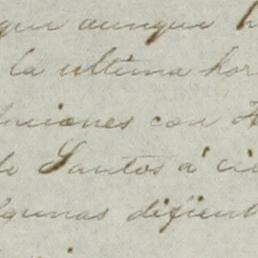 que aunque
la ultima hor
niones con
de Santos á ci
lgunas dificul